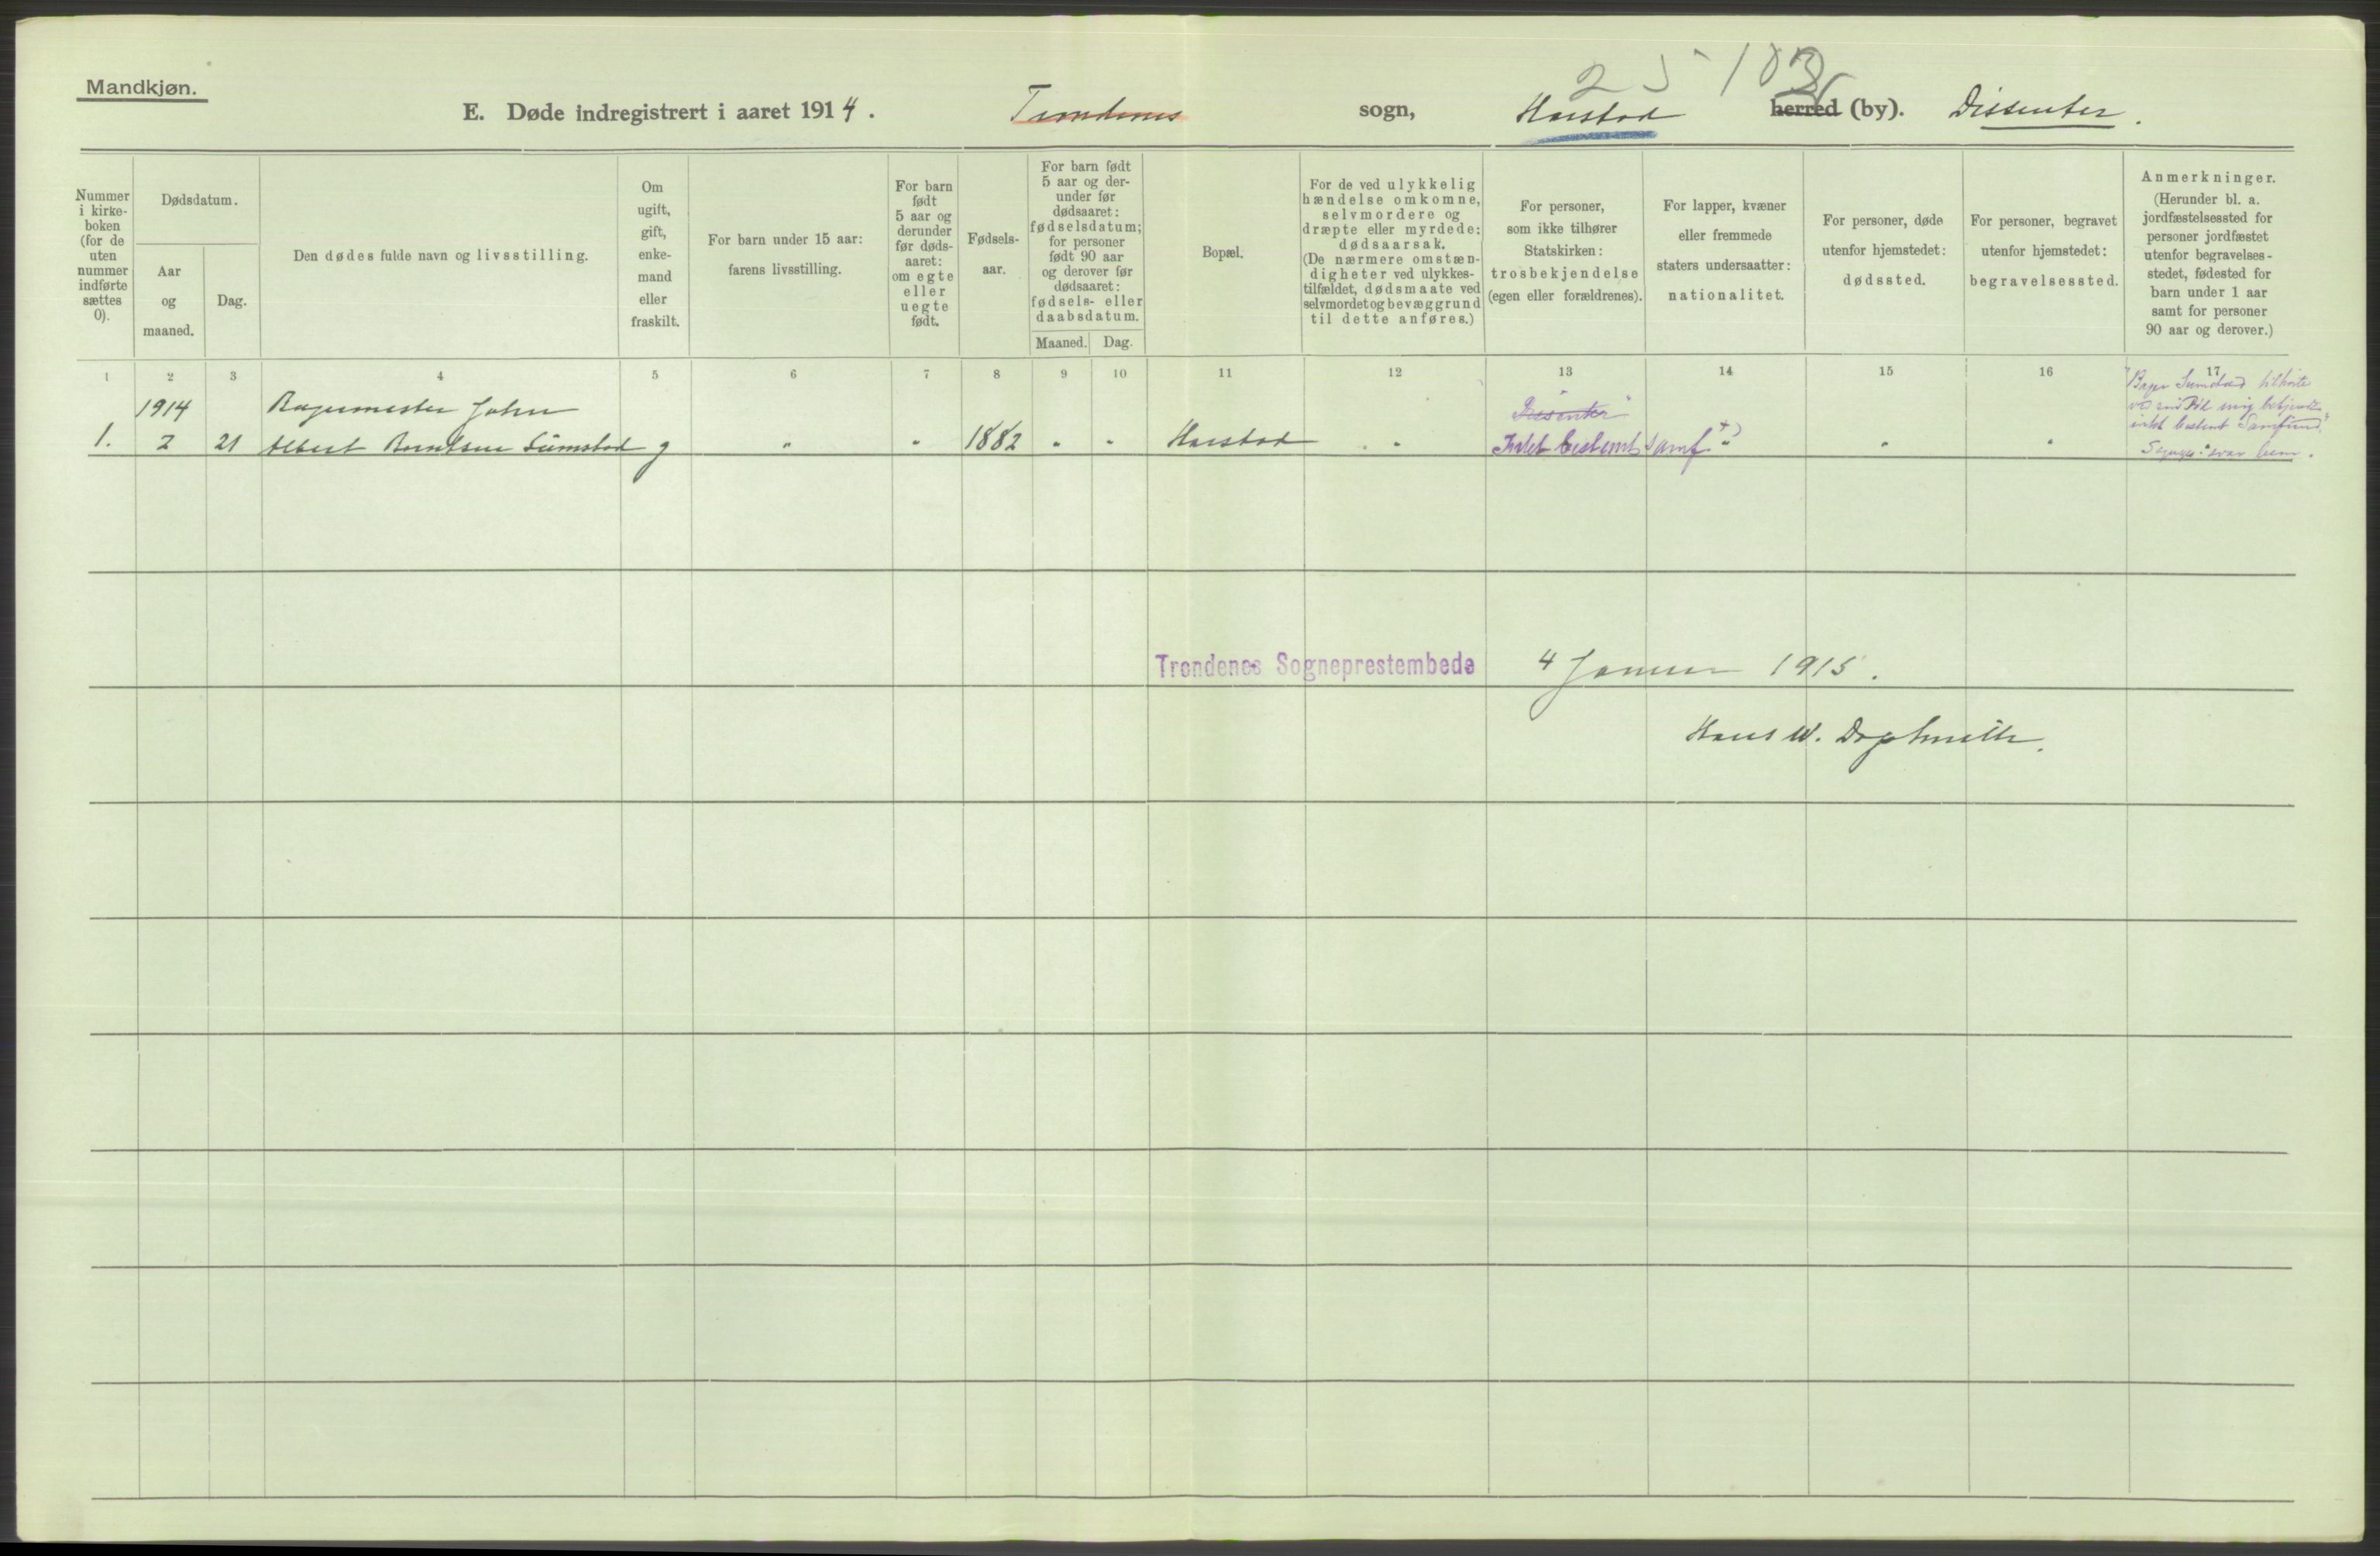 Mandkjøn.
25 103
E. Døde indregistrert i aaret 1914. Trondenes sogn, Harstad herred (by). Dissenter.
Nummer
i kirke-
boken
(for de
uten
nummer
indførte
sættes
0).
Dødsdatum.
Aar
og
maaned.
Dag.
Den dødes fulde navn og livsstilling.
Om
ugift,
gift,
enke-
mand
eller
fraskilt.
For barn under 15 aar:
farens livsstilling.
For barn
født
5 aar og
derunder
før døds-
aaret:
om egte
eller
uegte
født.
Fødsels-
aar.
For barn født
5 aar og der-
under før
dødsaaret:
fødselsdatum;
for personer
født 90 aar
og derover før
dødsaaret:
fødsels- eller
daabsdatum.
Maaned. Dag.
Bopæl.
For de ved ulykkelig
hændelse omkomne,
selvmordere og
dræpte eller myrdede:
dødsaarsak.
(De nærmere omstæn-
digheter ved ulykkes-
tilfældet, dødsmaate ved
selvmordet og bevæggrund
til dette anføres.)
For personer,
som ikke tilhører
Statskirken:
trosbekjendelse
(egen eller forældrenes).
For lapper, kvæner
eller fremmede
staters undersaatter:
nationalitet.
For personer, døde
utenfor hjemstedet:
dødssted.
For personer, begravet
utenfor hjemstedet:
begravelsessted.
Anmerkninger.
(Herunder bl. a.
jordfæstelsessted for
personer jordfæstet
utenfor begravelses-
stedet, fødested for
barn under 1 aar
samt for personer
90 aar og derover.)
1 2 3 4 5 6 7 8 9 10 11 12 13 14 15 16 17
1914 Bagermester Johan "Dissenter"
1. 2 21 Albert Berntsen Sumstad g " " 1882 " " Harstad " Intet bestemt Samf. +) " " "
"Bager Sumstad tilhørte
ved sin Død mig bekjendt
intet bestemt Samfund."
Trondenes Sogneprestembede 4 Januar 1915.
Hans W.